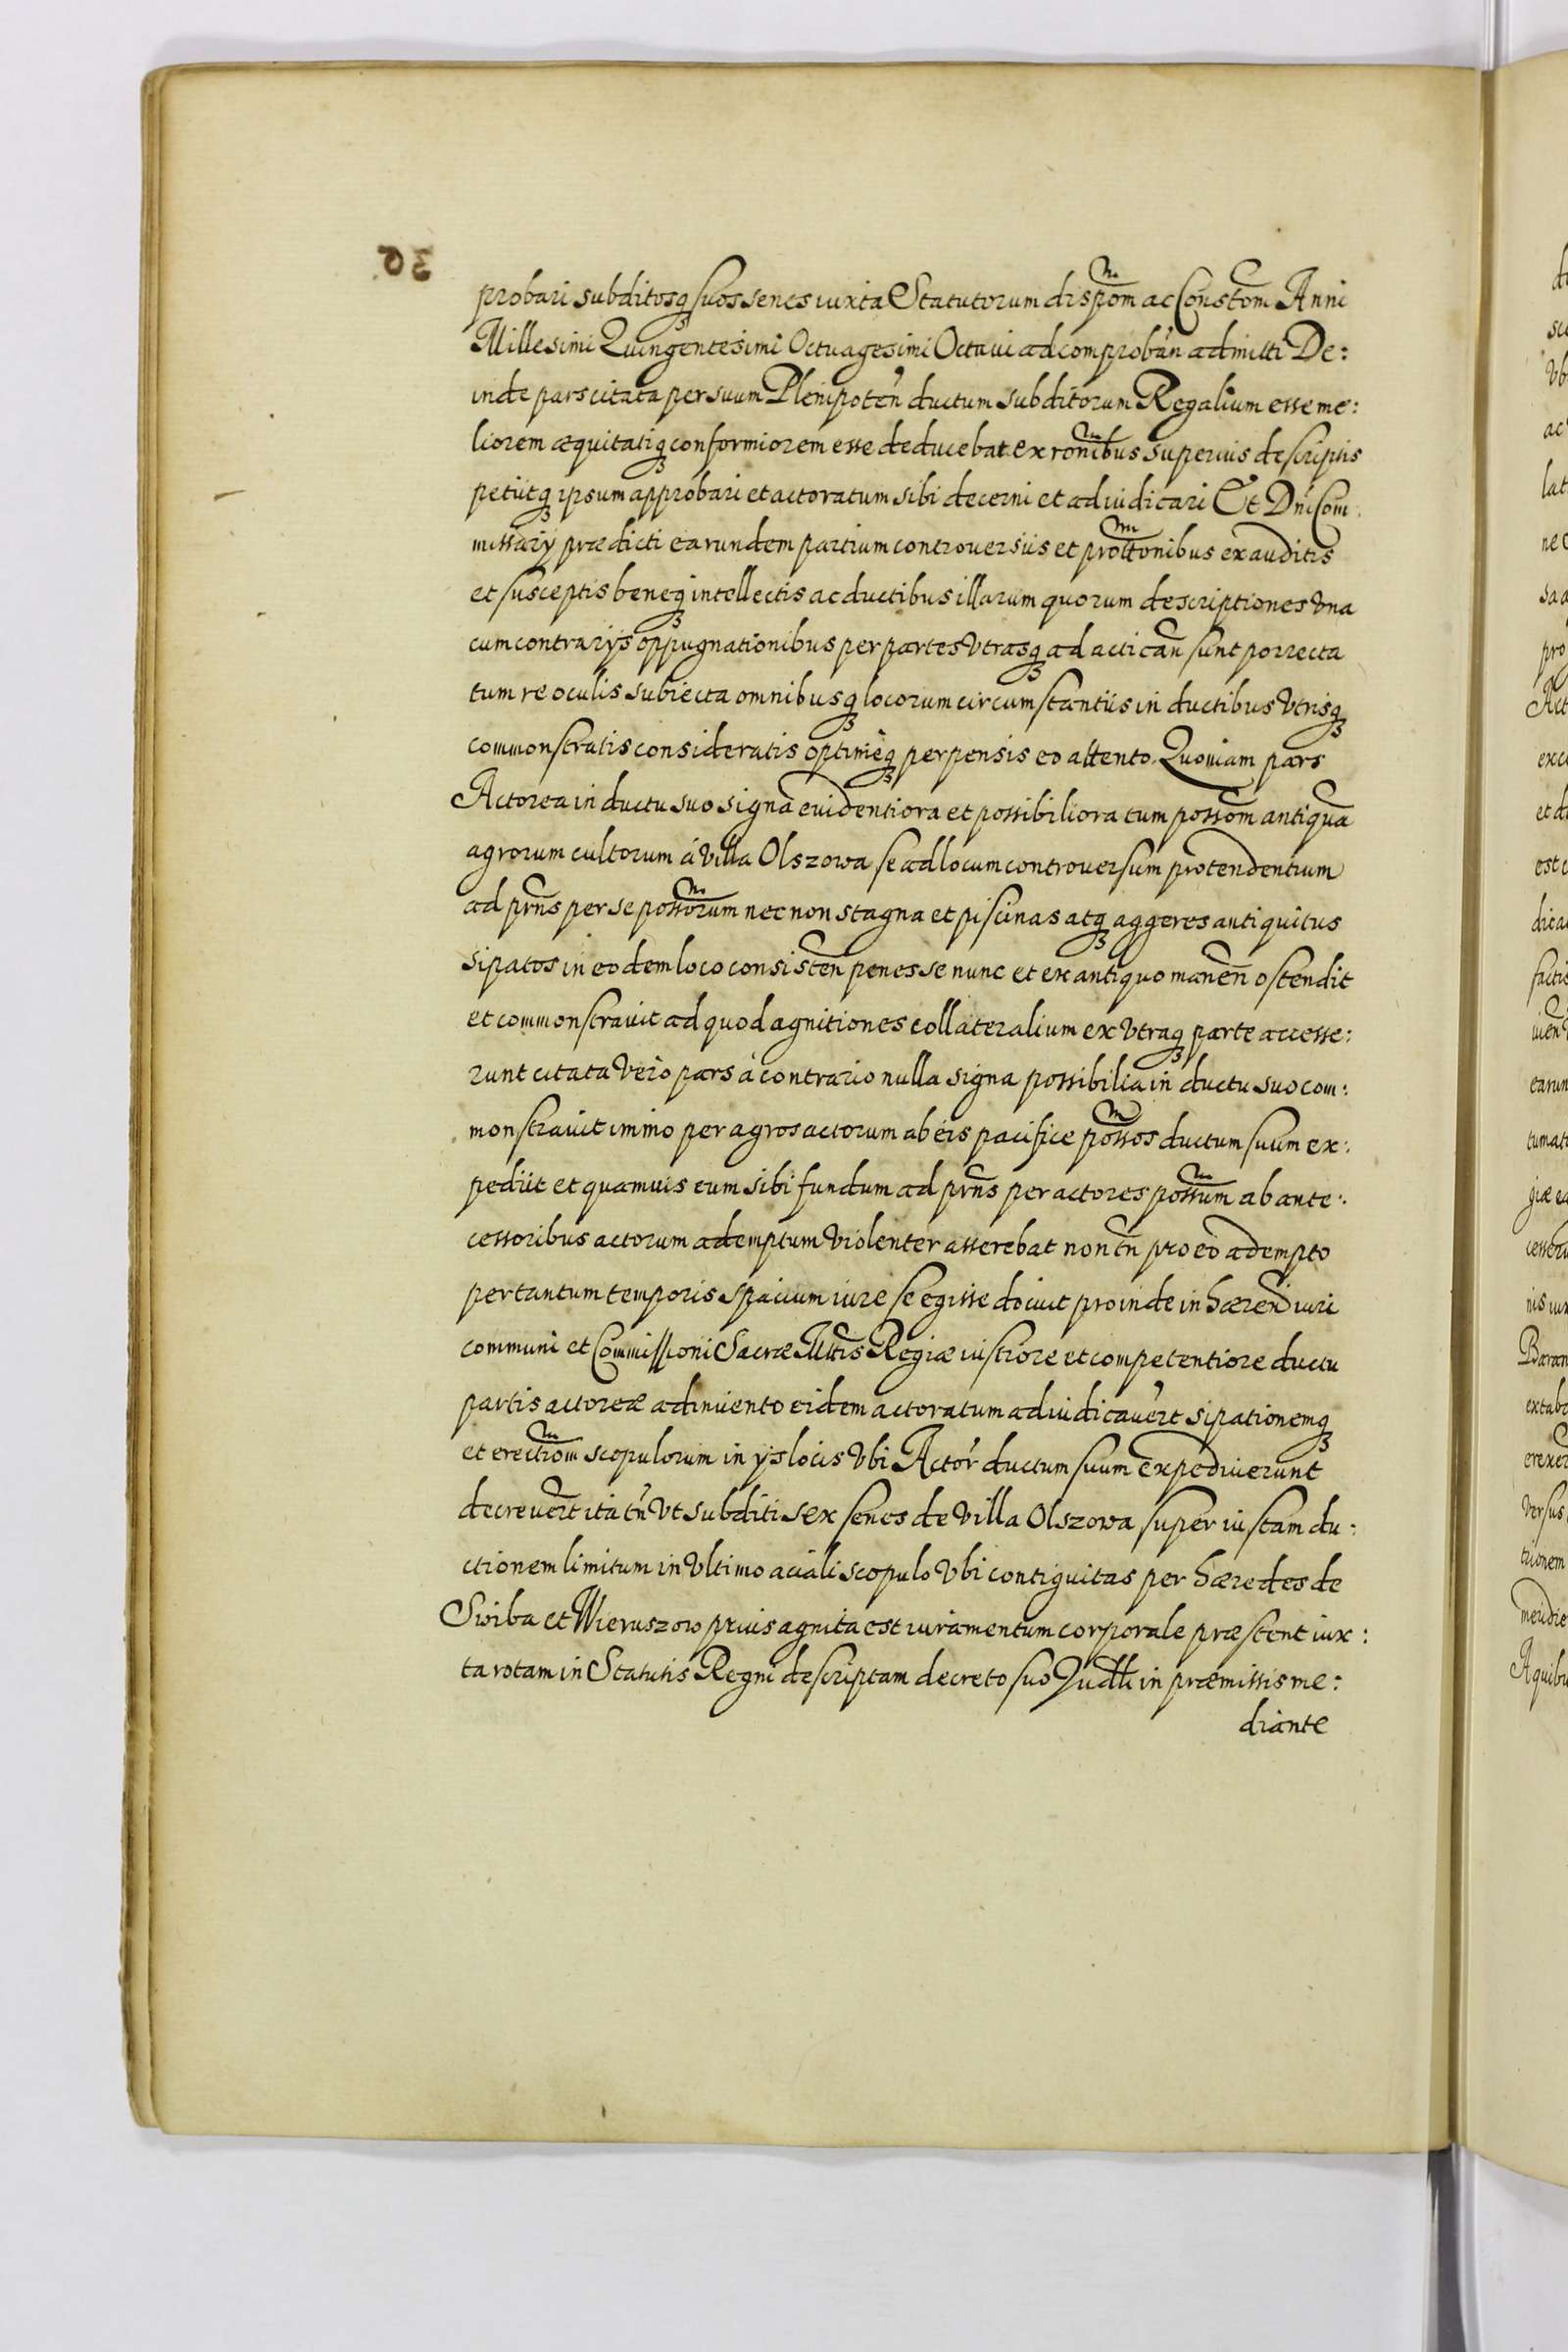 30
probari subditosq₃ suos senes iuxta Statutorum dispōm ac Constōm Anni
Millesimi Quingentesimi Octuagesimi Octaui ad comprobān admitti De:
inde pars citata per suum Plenipoteñ ductum subditorum Regalium esse me:
liorem æquitatiq₃ conformiorem esse deducebat ex rōnibus superius descriptis
petiitq₃ ipsum approbari et actoratum sibi decerni et adiudicari Et Dnī Com
missarÿ prædicti earundem partium controuersiis et proltōnibus exauditis
et susceptis beneq₃ intellectis ac ductibus illarum quorum descriptiones vna
cum contrarÿs oppugnationibus per partes vtrasq₃ ad acticañ sunt porrecta
tum re oculis subiecta omnibusq₃ locorum circumstantiis in ductibus vtrisq₃
commonstratis consideratis optimèq₃ perpensis eo attento. Quoniam pars
Actorea in ductu suo signa euidentiora et possibiliora tum possōm antiquā
agrorum cultorum à villa Olszowa se ad locum controuersum protendentium
ad prñs per se possōrum nec non stagna et piscinas atq₃ aggeres antiquitus
sipatos in eodem loco consisteñ penes se nunc et ex antiquo maneñ ostendit
et commonstrauit ad quod agnitiones collateralium ex vtraq₃ parte accesse:
runt citata verò pars à contrario nulla signa possibilia in ductu suo com:
monstrauit immo per agros actorum ab eis pacifice possos ductum suum ex:
pediit et quamuis eum sibi fundum ad prñs per actores possum ab ante:
cessoribus actorum ademptum violenter asserebat non tñ pro eo adempto
per tantum temporis spacium iure se egisse docuit proinde inhæreñ iuri
communi et Commissioni Sacræ Mtis Regiæ iustiore et competentiore ductu
partis actoreæ adinuento eidem actoratum adiudicauēnt sipationemq₃
et erectiōm scopulorum in ÿs locis vbi Actor ductum suum expediuerunt
decreuērt ita tñ vt subditi sex senes de villa Olszowa super iustam du:
ctionem limitum in vltimo aciali scopulo vbi contiguitas per hæredes de
Swiba et Wieruszow prius agnita est iuramentum corporale præstent iux:
ta rotam in Statutis Regni descriptam decreto suo Judli in præmissis me:
diante